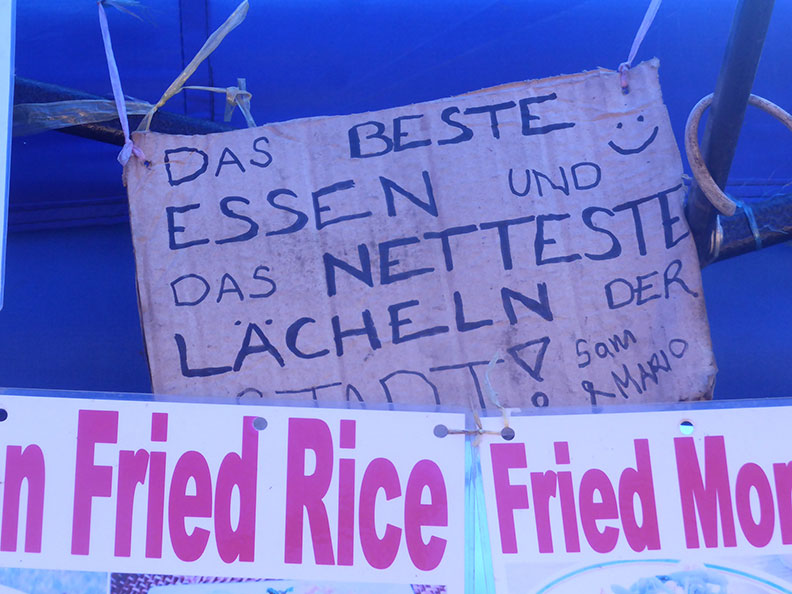 DAS BESTE
ESSEN UND
DAS NETTESTE
LÄCHELN DER
STADT!
Sam
& MARIO
n Fried Rice
Fried Mor